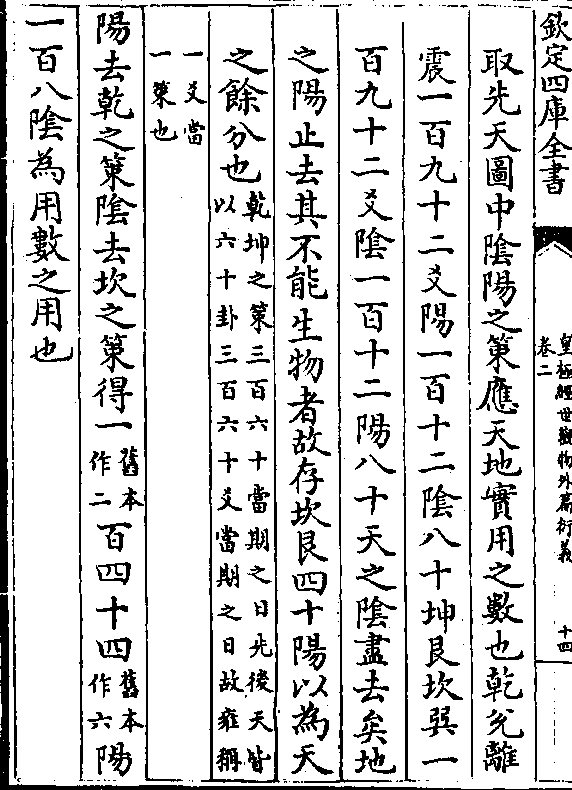 欽定四庫全書
皇極經世觀物外篇衍義
卷二
十四
取先天圖中陰陽之策應天地實用之數也乾兌離
震一百九十二爻陽一百十二陰八十坤艮坎巽一
百九十二爻陰一百十二陽八十天之陰盡去矣地
之陽止去其不能生物者故存坎艮四十陽以為天
之餘分也乾坤之策三百六十當期之日先後天皆
以六十卦三百六十爻當期之日故雍稱
一爻當
一策也
陽去乾之策陰去坎之策得一舊本
作二百四十四舊本
作六陽
一百八陰為用數之用也